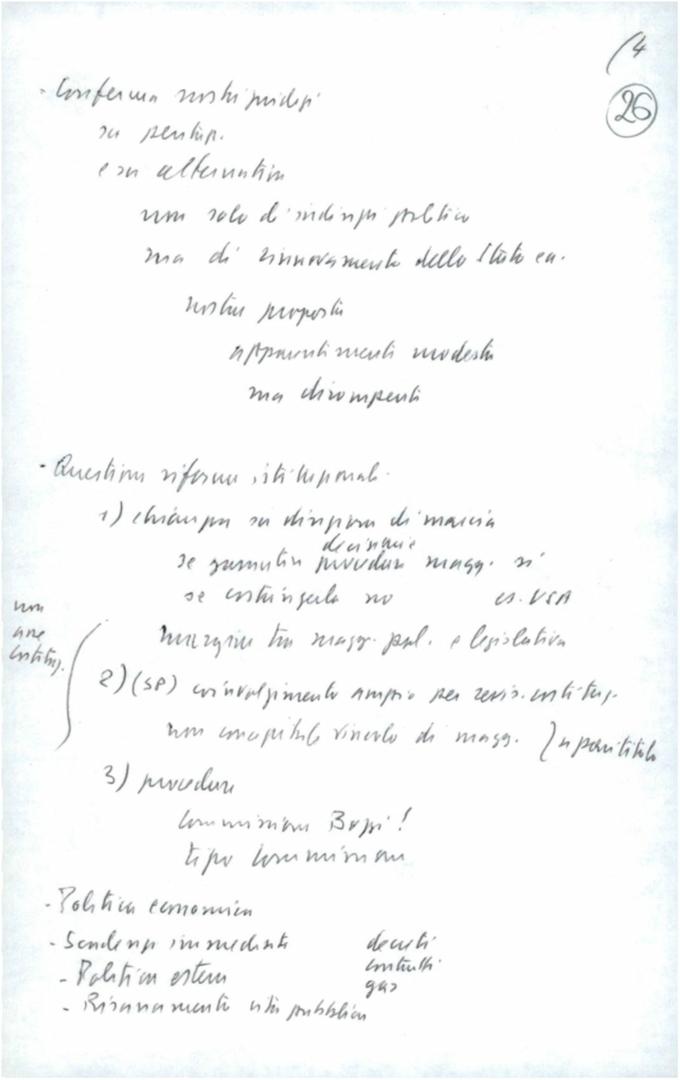 /4
26
- Conferma nostri giudizi
su pentap.
e su alternativa
non solo di indirizzi politico
ma di rinnovamento dello Stato ecc.
nostre proposte
apparentemente modeste
ma dirompenti
- Questione riforme istituzionali
1) chiarezza su
di marcia
decisione
se garantire procedure magg. sì
se costringerla no es. USA
tra magg. pol. e legislativa
non
2) (SP) coinvolgimento ampio per revis. costituz.
non vincolo di magg.
3) procedure
Commissione Bozzi!
tipo Commissione
- Politica economica
- Scadenze immediate decreti
contratti
gas
- Politica estera
- Risanamento vita pubblica